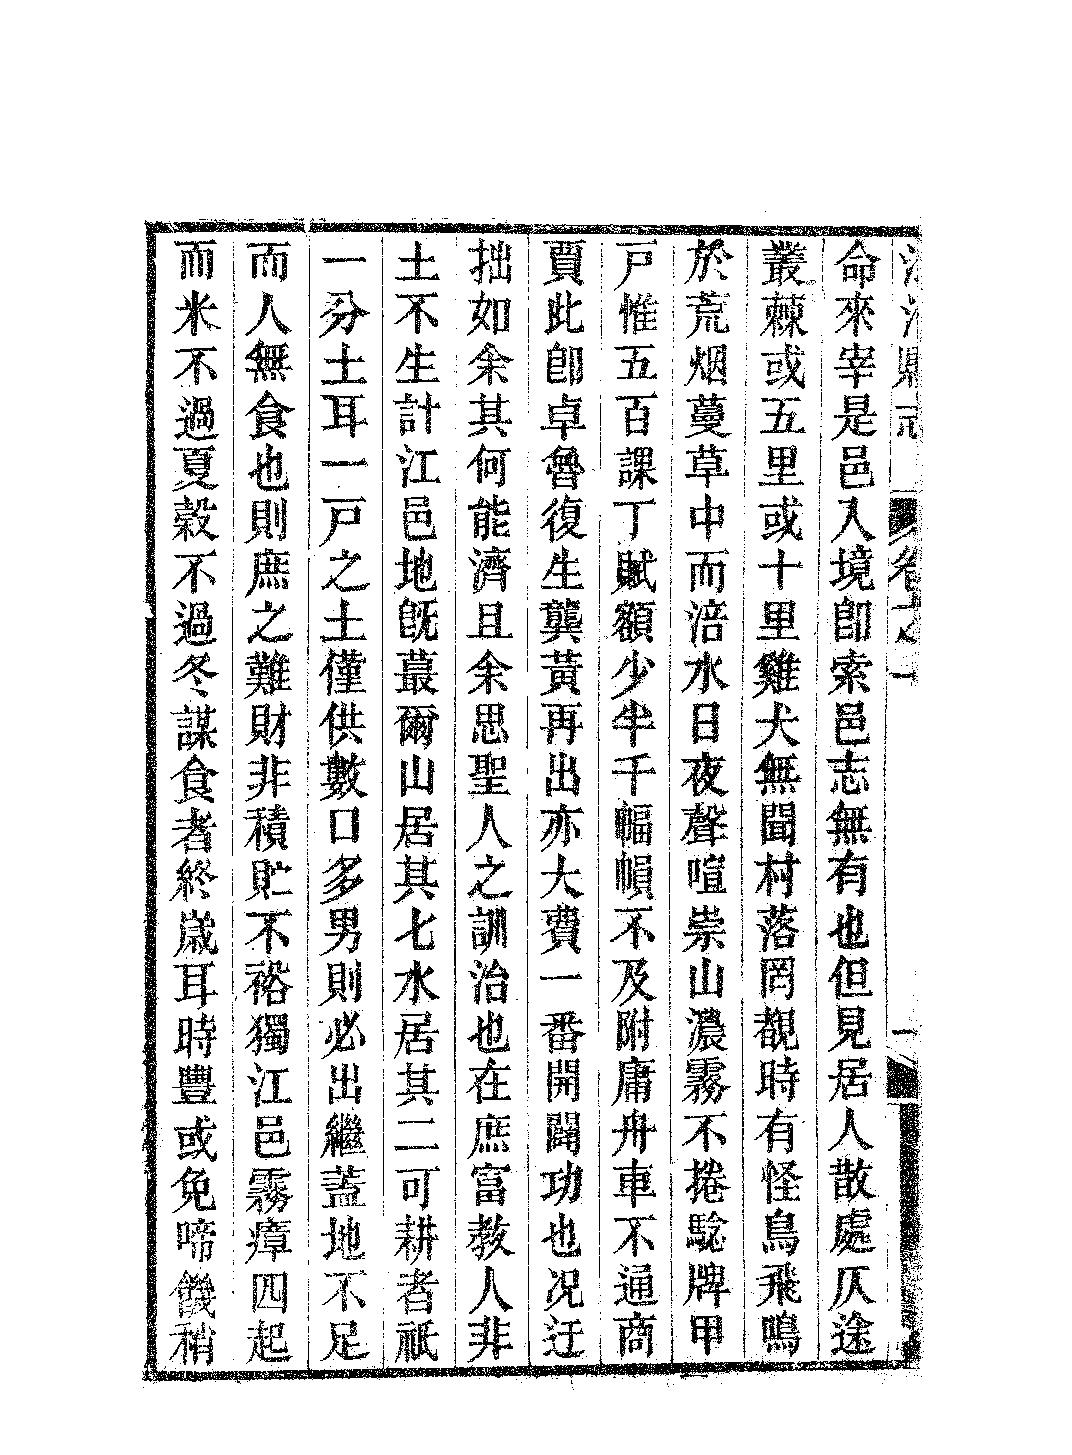 縣志
卷十之
命來宰是邑入境卽索邑志無有也但見居人散處仄途
叢棘或五里或十里雞犬無聞村落罔覩時有怪鳥飛鳴
於荒烟蔓草中而涪水日夜聲喧崇山濃霧不捲騐牌甲
戸惟五百課丁賦額少半千幅幀不及附庸舟車不通商
賈此卽卓魯復生龔黃再出亦大費一番開闢功也况迂
拙如余其何能濟且余思聖人之訓治也在庶富教人非
土不生計江邑地旣蕞爾山居其七水居其二可耕者祇
一分土耳一戸之土僅供數口多男則必出繼蓋地不足
而人無食也則庶之難財非積貯不裕獨江邑霧瘴四起
而米不過夏穀不過冬謀食者終歲耳時豐或免啼饑稍